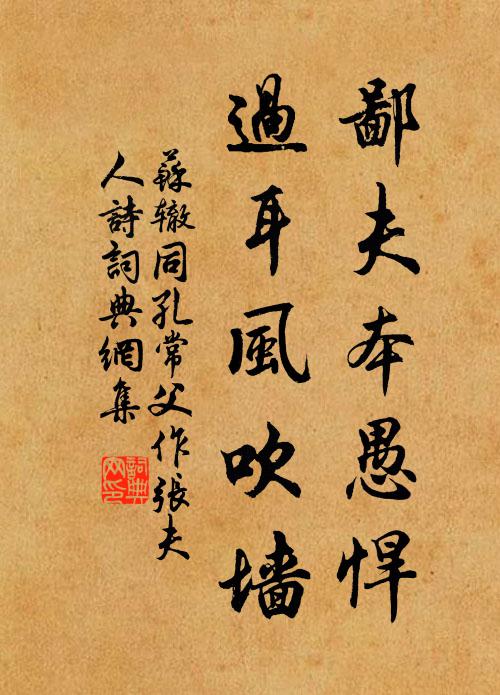 鄙夫本愚悍
過耳風吹墙
蘇辙同孔常父作張夫
人詩詞典網集
詞典
网印